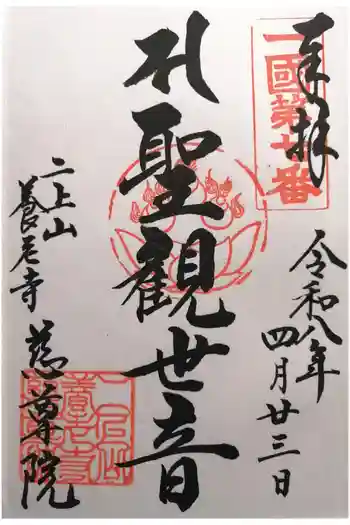 奉拝
一國第番
令和八年
四月廿三日
聖觀世音
二上山
養老寺 慈尊院